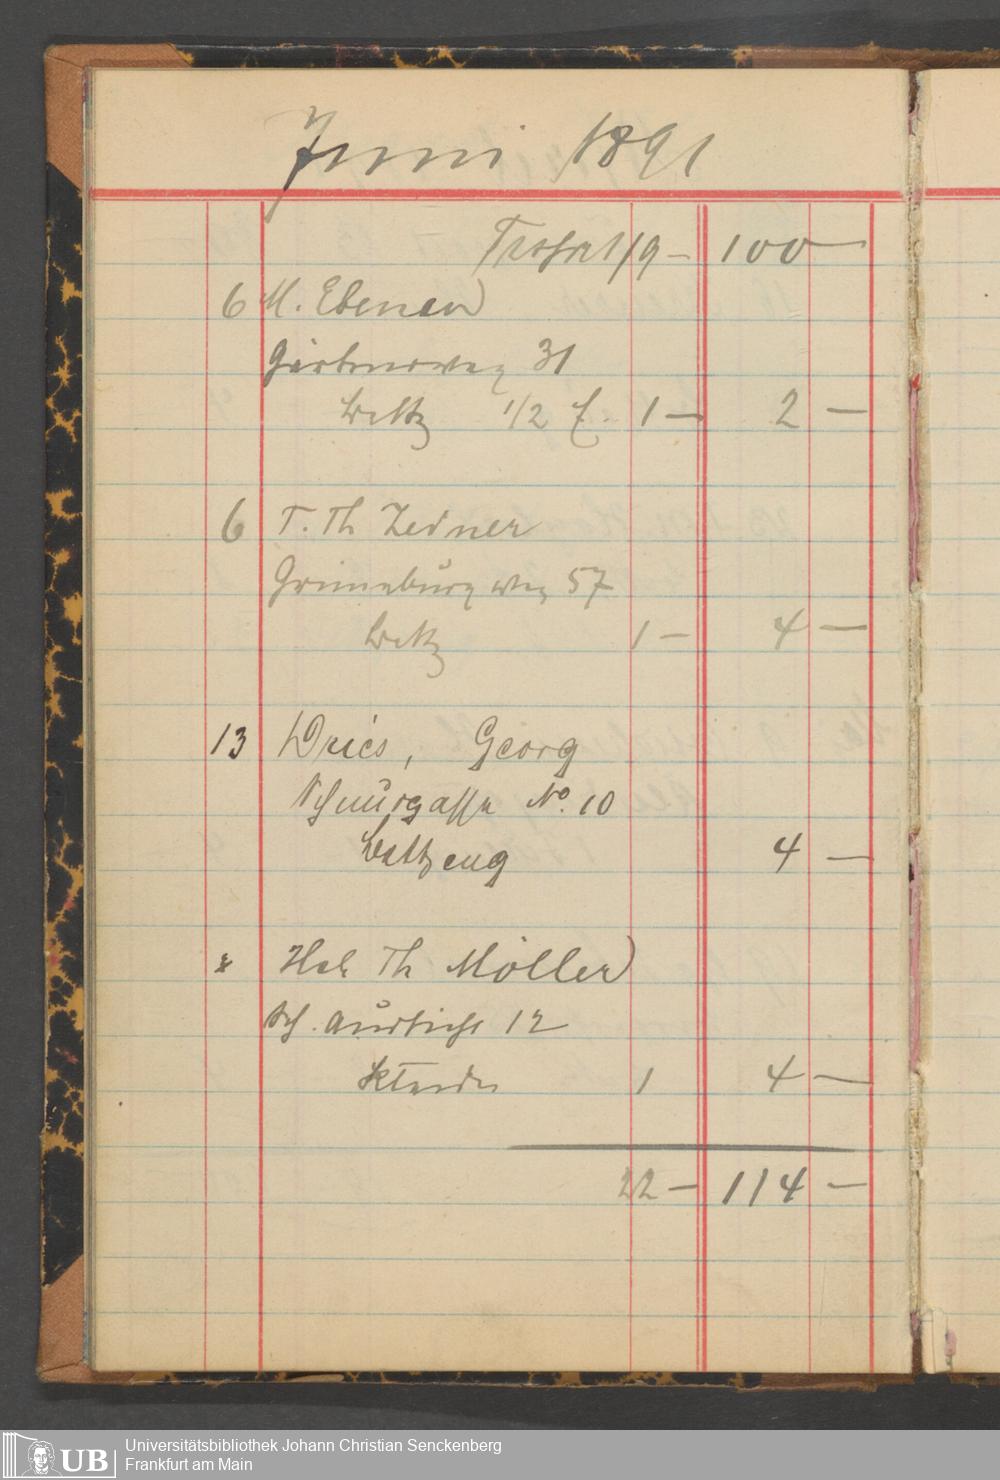 Juni 1891
Trspt 19 - 100 -
6 M. Ebenau
Gärtnerweg 31
Bettz 1/2 f. 1 - 2 -
6 T. Th Zeidner
Grüneburgweg 57
Bettz 1 - 4 -
13 Dries, Georg
Schnurgasse No. 10
Bettzeug 4 -
Th Möller
Sch. Aussicht 12
Kleider 1 4 -
22 - 114 -
UB
Universitätsbibliothek Johann Christian Senckenberg
Frankfurt am Main